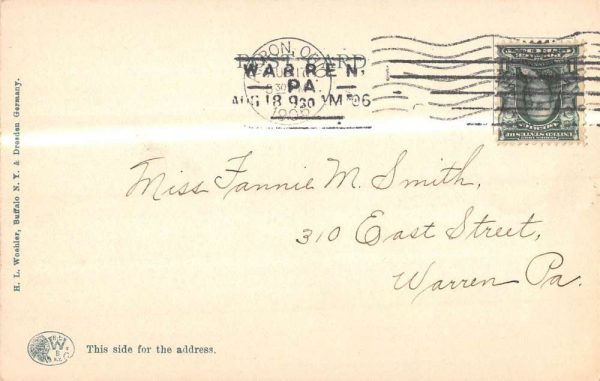 POST CARD
AKRON, O
AUG 17
530
1906
WARREN,
PA.
AUG 18 930 AM '06
Miss Fannie M. Smith,
310 East Street,
Warren Pa.
H. L. Woehler, Buffalo N. Y. & Dresden Germany.
W
This side for the address.